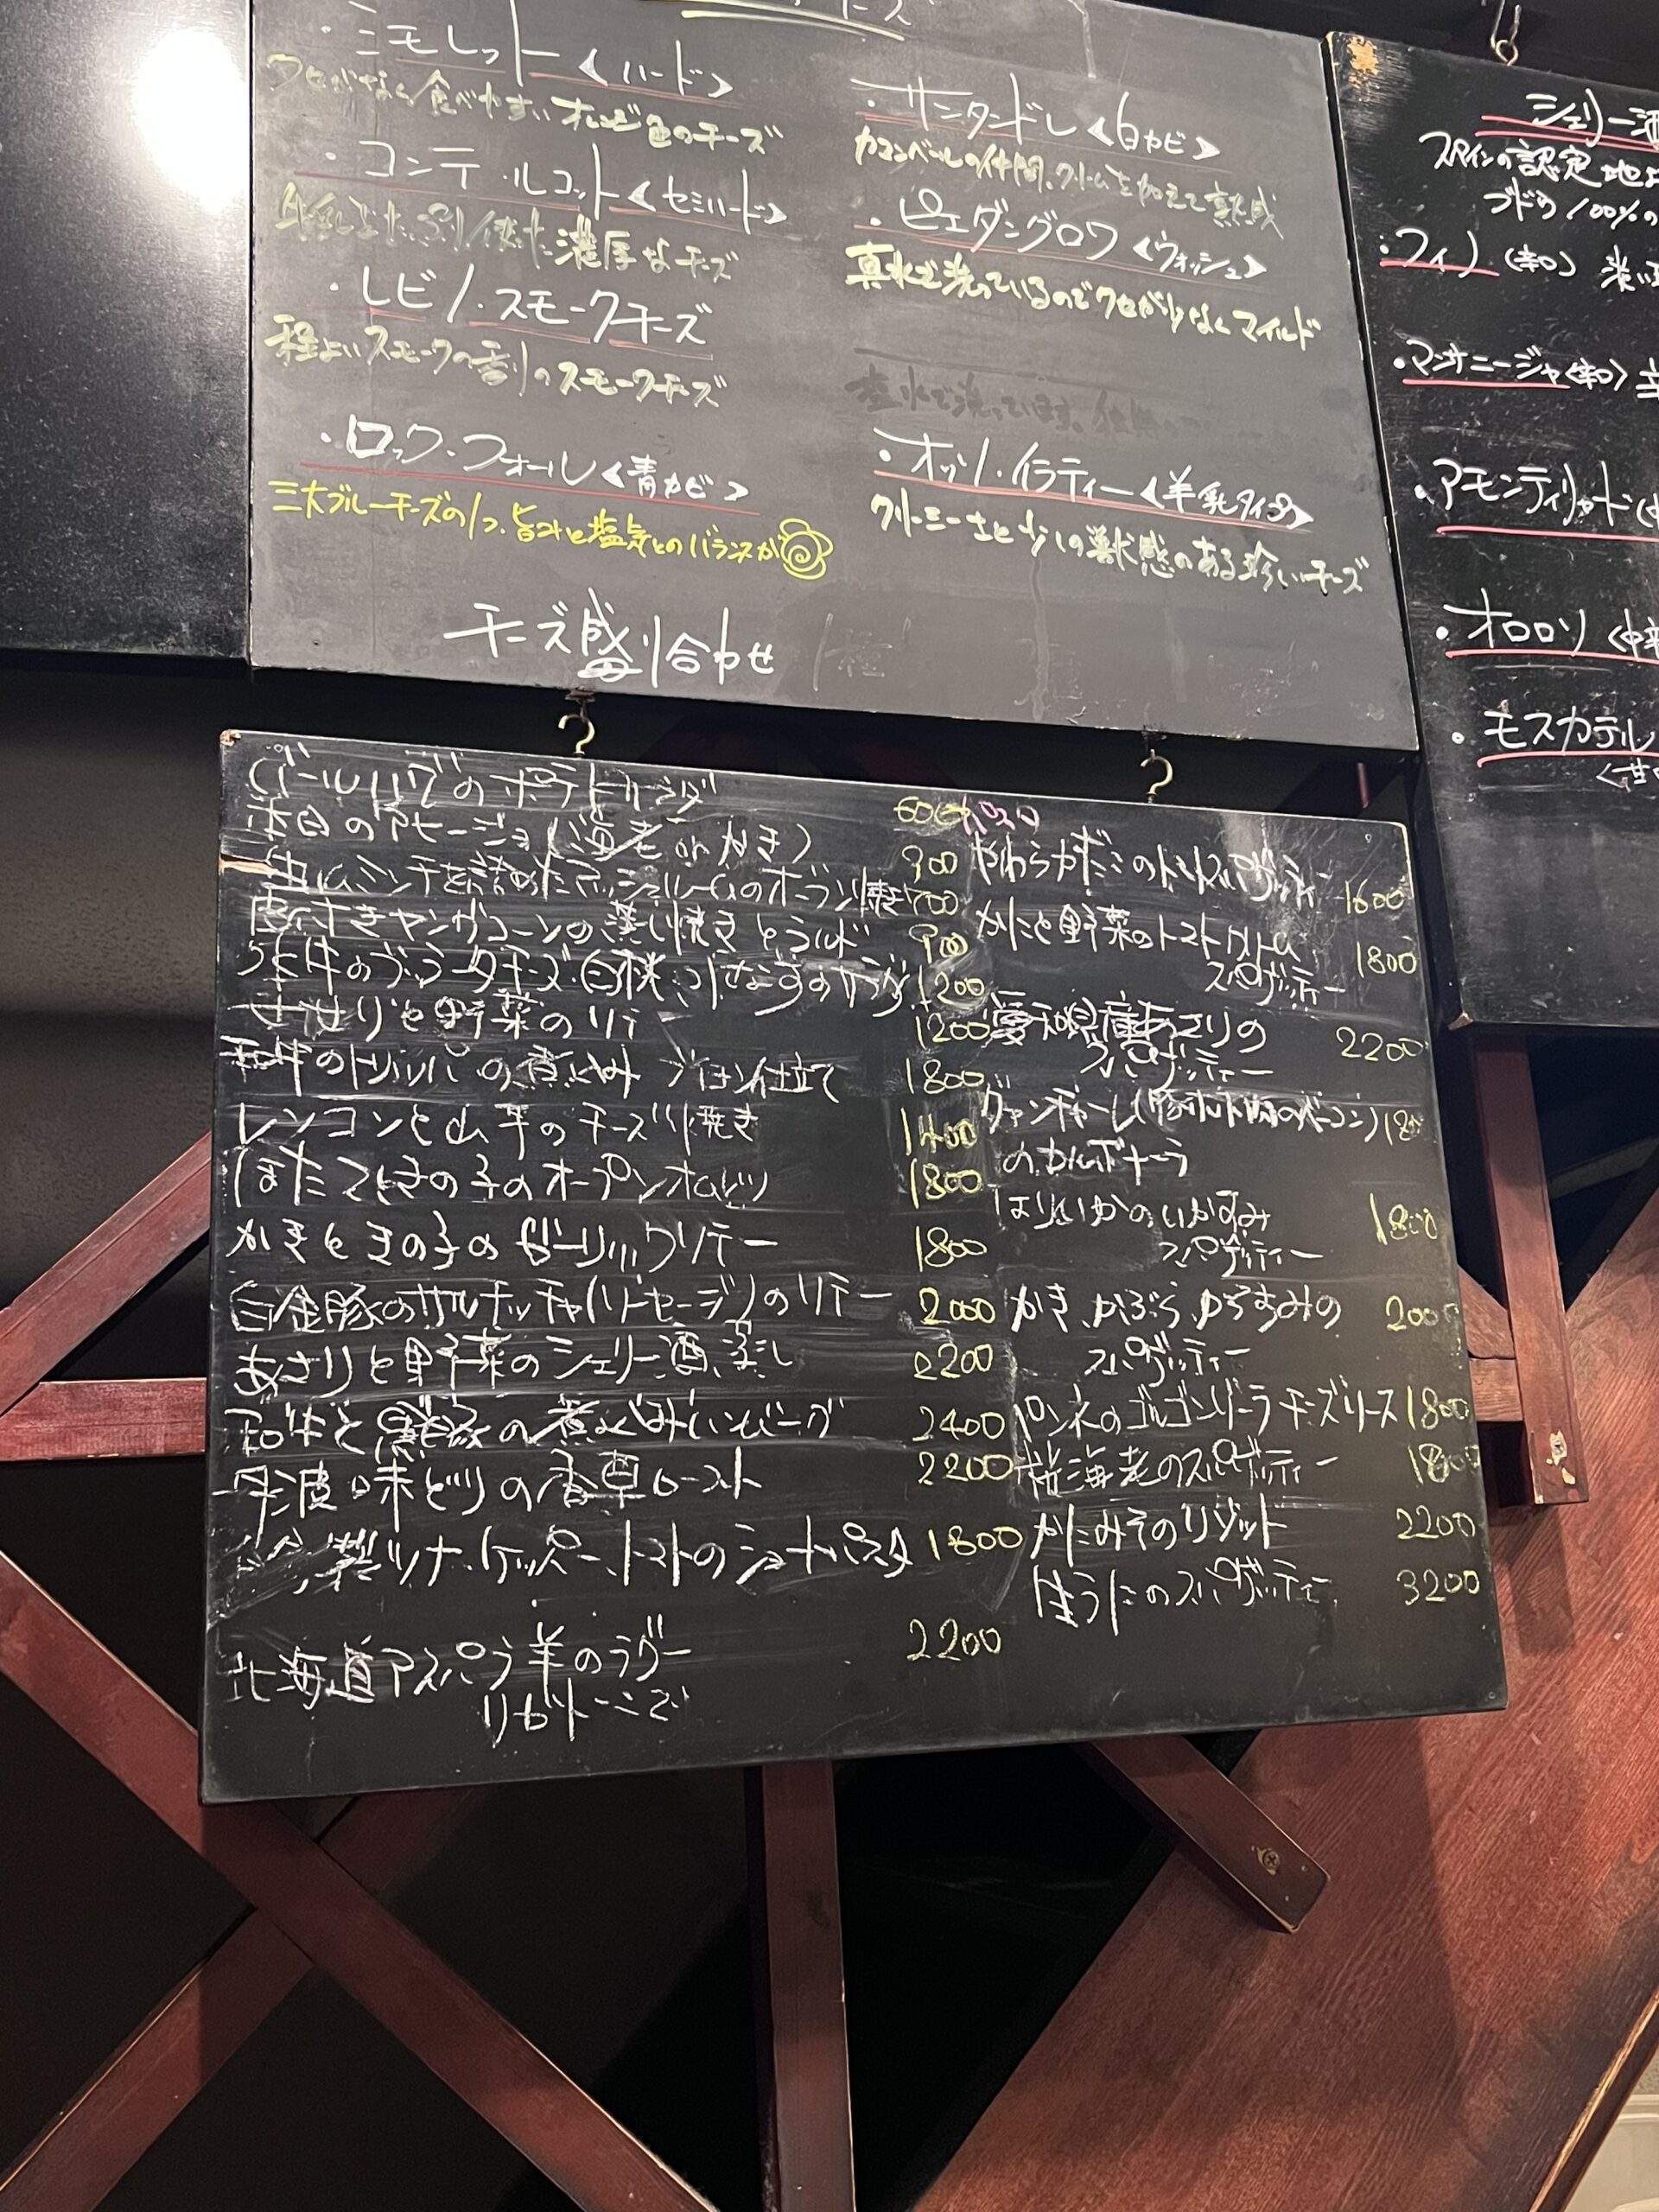 ・ミモレット〈ハード〉
クセがなく食べやすいオレンジ色のチーズ
・コンテ・ルコット〈セミハード〉
牛乳をたっぷり使った濃厚なチーズ
・レビノ・スモークチーズ
程よいスモークの香りのスモークチーズ
・ロックフォール〈青カビ〉
三大ブルーチーズの1つ、旨みと塩気とのバランスが
・サンタンドレ〈白カビ〉
カマンベールの仲間、クリームを加えて熟成
・ピエダングロワ〈ウォッシュ〉
真水で洗っているのでクセが少なくマイルド
塩水で洗っています。
・オッソ・イラティー〈羊乳タイプ〉
クリーミーさと少しの獣感のある珍しいチーズ
チーズ盛り合わせ
シェリー酒
スペインの認定地
ブドウ100%の
・フィノ（辛口）淡い
・マンサニージャ〈辛口〉
・アモンティリャード
・オロロソ〈中辛
・モスカテル
〈甘
バールハブのポテトサラダ 600
のアヒージョ（海老orかき） 900
ミンチを詰めたマッシュルームのオーブン焼き 700
皮付きヤングコーンの蒸し焼き 900
のブラータチーズ、白桃、のサラダ 1200
と野菜のソテー 1200
和牛のトリッパの煮込み 仕立て 1800
レンコンと山芋のチーズ焼き 1400
ほたてときの子のオープンオムレツ 1800
かきときの子のガーリックソテー 1800
白金豚のサルチッチャ（ソーセージ）のソテー 2000
あさりと野菜のシェリー酒蒸し 2200
和牛と の煮込みハンバーグ 2400
丹波味どりの香草ロースト 2200
製ツナ、ケッパー、トマトのショートパスタ 1800
北海道アスパラ羊のラグー 2200
リガトーニで
やわらかだこのトマトスパゲッティー 1600
かにと野菜のトマトクリーム
スパゲッティー 1800
愛知県産あさりの 2200
スパゲッティー
グァンチャーレ（豚ホホ肉のベーコン） 1800
のカルボナーラ
はりいかのいかすみ 1800
スパゲッティー
かき、かぶら、からすみの 2000
スパゲッティー
ペンネのゴルゴンゾーラチーズソース 1800
桜海老のスパゲッティー 1800
かにみそのリゾット 2200
生うにのスパゲッティー 3200